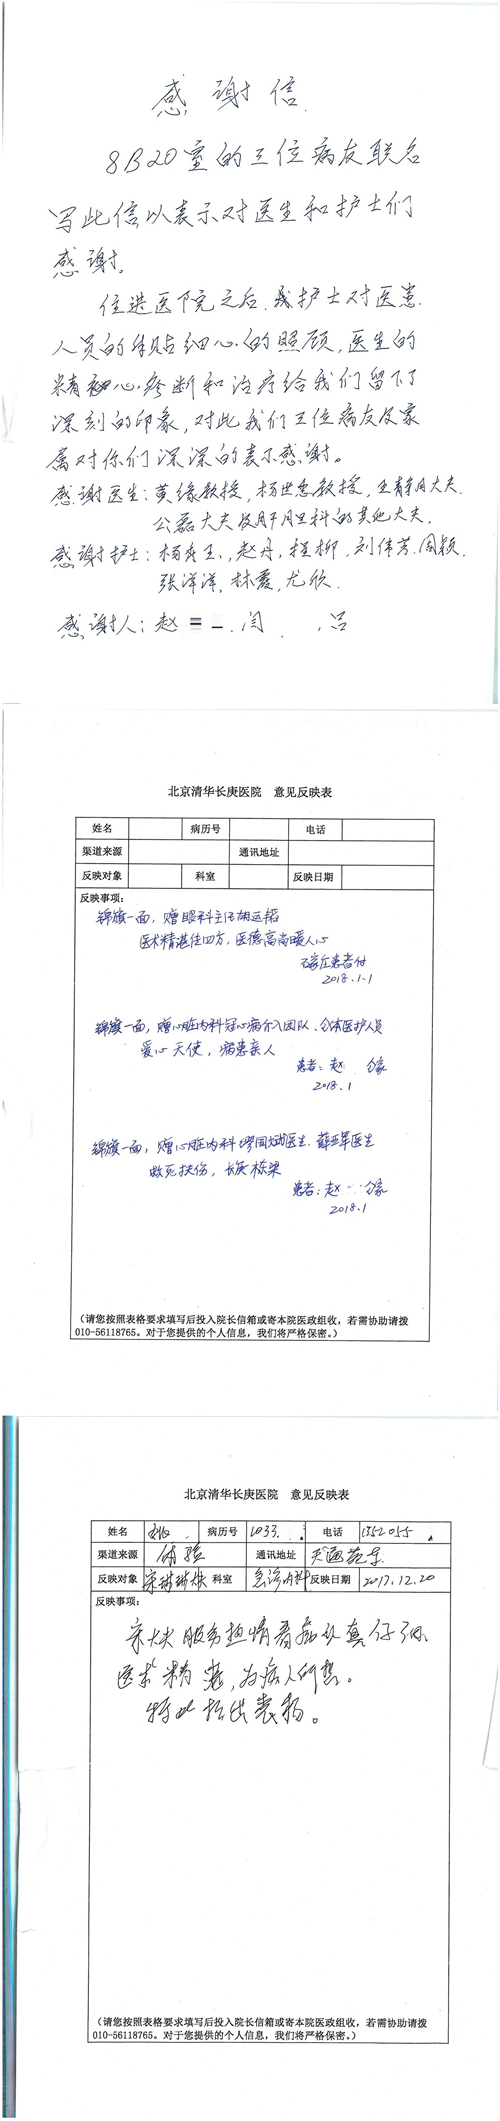 感谢信
8B20室的三位病友联名
写此信以表示对医生和护士们
感谢。
住进医院之后,我护士对医患
人员的体贴细心的照顾,医生的
精心诊断和治疗给我们留下了
深刻的印象,对此我们三位病友及家
属对你们深深的表示感谢。
感谢医生:黄缘教授,杨世忠教授,王静月大夫.
公磊大夫及肝胆科的其他大夫.
感谢护士:杨 玉,赵丹,程柳,刘伟芳,周颖,
张洋洋,林霞,尤欣.
感谢人:赵 闫 吕
北京清华长庚医院 意见反映表
姓名 病历号 电话
渠道来源 通讯地址
反映对象 科室 反映日期
反映事项:
锦旗一面,赠眼科主任胡运韬
医术精湛佳四方,医德高尚暖人心
石家庄患者付
2018.1.1
锦旗一面,赠心脏内科冠心病介入团队、全体医护人员
爱心天使,病患亲人
患者:赵 全家
2018.1
锦旗一面,赠心脏内科缪国斌医生、薛亚军医生
救死扶伤,长庚栋梁
患者:赵 全家
2018.1
(请您按照表格要求填写后投入院长信箱或寄本院医政组收,若需协助请拨
010-56118765。对于您提供的个人信息,我们将严格保密。)
北京清华长庚医院 意见反映表
姓名 病历号 1033 电话 1352055
渠道来源 体验 通讯地址 天通苑东
反映对象 宋琳琳 科室 急诊内科 反映日期 2017.12.20
反映事项:
宋大夫服务热情看病认真仔细
医术精湛,为病人所想。
特此提出表扬。
(请您按照表格要求填写后投入院长信箱或寄本院医政组收,若需协助请拨
010-56118765。对于您提供的个人信息,我们将严格保密。)